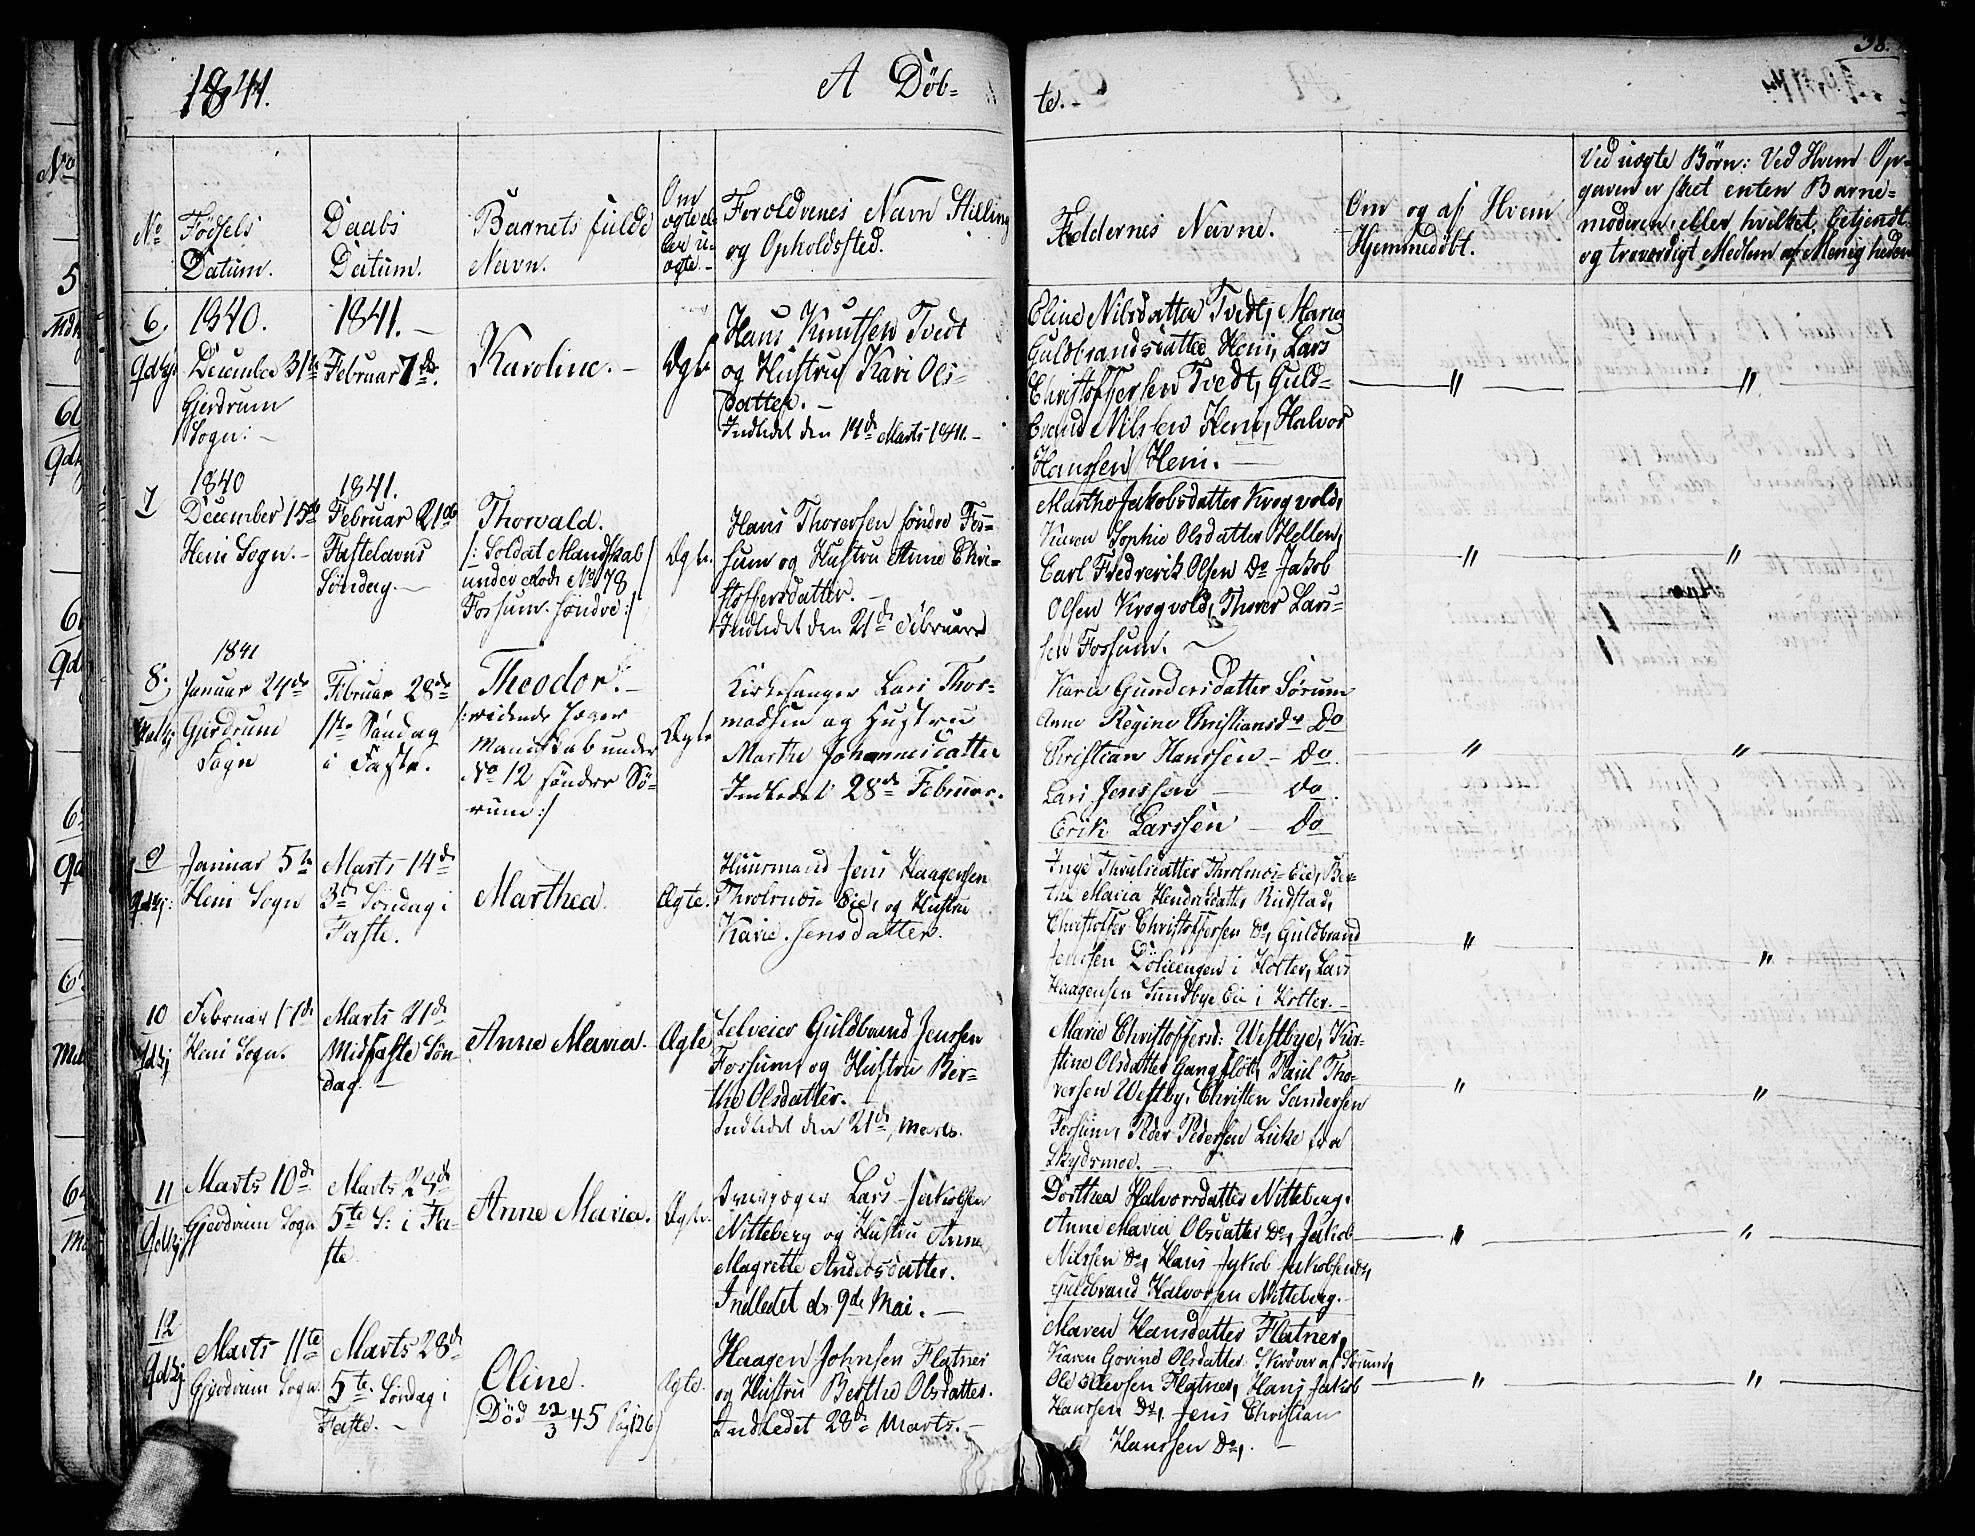 1841.
A Döb=
te.
38.
No
Fødsels
Datum.
Daabs
Datum.
Barnets fulde
Navn.
Om
ægte el
ler u-
ægte.
Forældrenes Navn Stilling
og Opholdssted.
Faddernes Navne.
Om og af Hvem
Hjemmedøbt.
Ved uægte Börn: Ved Hvem Op-
gaven er skeet enten Barne-
moderen, eller hvilket, betjendt
og troværdigt Medlem af Menigheden
6
1840.
December 31te
Gjerdrum
Sogn.
1841.
Februar 7de.
Karoline.
Ægte
Hans Knutsen Tvedt
og Hustru Kari Ols-
datter.
Indledet den 14de Marts 1841.
Eline Nilsdatter Tvedt, Maria
Guldbrandsdatter Heni, Lars
Christoffersen Tvedt, Guld-
brand Nilsen Heni, Halvor
Hanssen Heni.
"
"
7
1840
December 15de
Heni Sogn.
1841.
Februar 21de
Fastelavns
Söndag.
Thorvald.
/: Soldat Mandskab
under Rode No 78
Fossum søndre :/
Ægte.
Hans Thorersen søndre Fos-
sum og Hustru Anne Chri-
stoffersdatter.
Indledet den 21de Februar
Marthe Jakobsdatter Krogvold,
Karen Sophie Olsdatter Hellen,
Carl Fredrerik Olsen Do Jakob
Olsen Krogvold, Thorer Lars-
sen Fossum.
"
"
8.
1841
Januar 24de
Gjerdrum
Sogn
Februar 28de
1te Søndag
i Faste.
Theodor.
/: ridende Jæger
Mandskab under
No 12 søndre Sö-
rum :/
Ægte
Kirkesanger Lars Thor-
modsen og Hustru
Marthe Johannesdatter
Indledet 28de Februar.
Karen Gundersdatter Sørum
Anne Regine Christiansdr Do
Christian Hanssen - Do.
Lars Jenssen - do.
Erik Larssen - Do
"
"
9
Januar 5te
Heni Sogn
Marts 14de
3de Söndag i
Faste.
Marthea.
Ægte.
Huusmand Jens Haagensen
Eie, og Hustru
Karie Jensdatter.
Inge
Maria Hendrisdatter Rudstad,
Christoffer Christoffersen Do, Guldbrand
Jenssen i Holter, Lars
Haagensen Sundbye Eie i Holter.
"
"
10
Februar 11de
Heni Sogn.
Marts 21de
Midfaste Sön-
dag.
Anne Maria.
Ægte
Selveier Guldbrand Jenssen
Fossum, og Hustru Ber-
the Olsdatter.
Indledet den 21de, Marts.
Marie Christoffersd: Westbye, Kir-
stine Olsdatter Gangfløt, Paul Tho-
rersen Westby, Christen Sandersen
Fossum, Peder Pedersen
Skydsmoe.
"
"
11
Marts 10de
Gjerdrum Sogn
Marts 28de
5te S: i Fa-
ste.
Anne Maria.
Ægte.
Lars Jakobsen
Nitteberg og Hustru Anne
Magrette Andersdatter.
Indledet d. 9de Mai.
Dorthea Halvorsdatter Nitteberg,
Anne Maria Olsdatter Do, Jakob
Nilssen Do, Hans Jakob Jakobsen Do,
Guldbrand Halvorsen Nitteberg.
"
"
12
Marts 11te
Gjerdrum Sogn.
Marts 28de
5te Söndag i
Faste.
Oline.
(Död 22/3 45 Pag 126)
Ægte.
Haagen Johnsen Flatner
og Hustru Berthe Olsdatter.
Indledet 28de Marts.
Maren Hansdatter Flatner,
Karen Govine Olsdatter Skröver af Sørum,
Ole Flatner, Hans Jakob
Hanssen Do, Jens Christian
Hanssen Do,
"
"